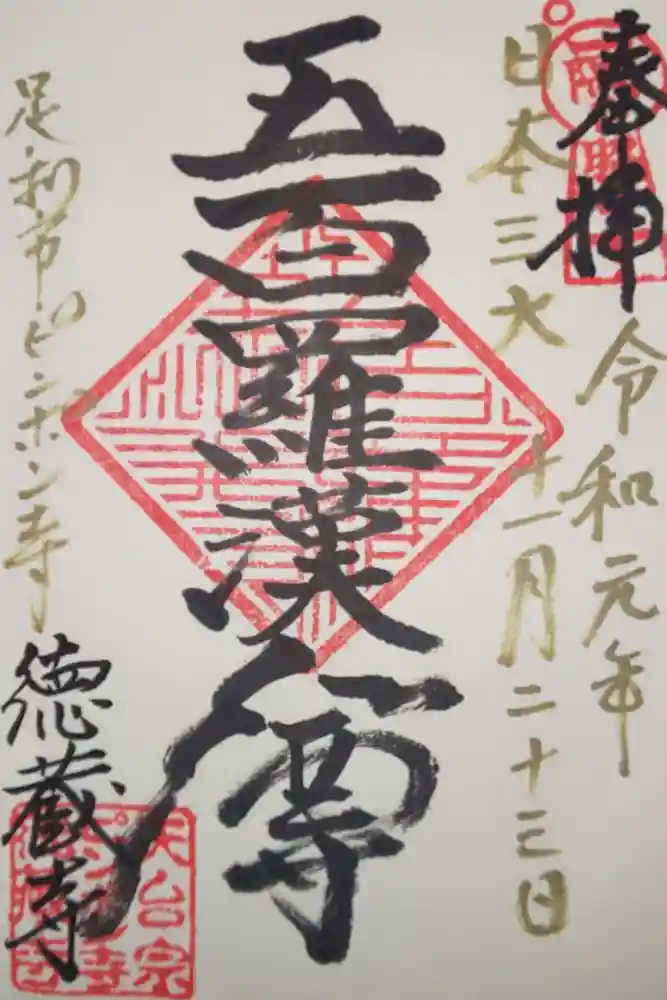 奉拝
令和元年
日本三大
十一月二十三日
五百羅漢尊
足利市ピンポン寺
徳蔵寺
天台宗